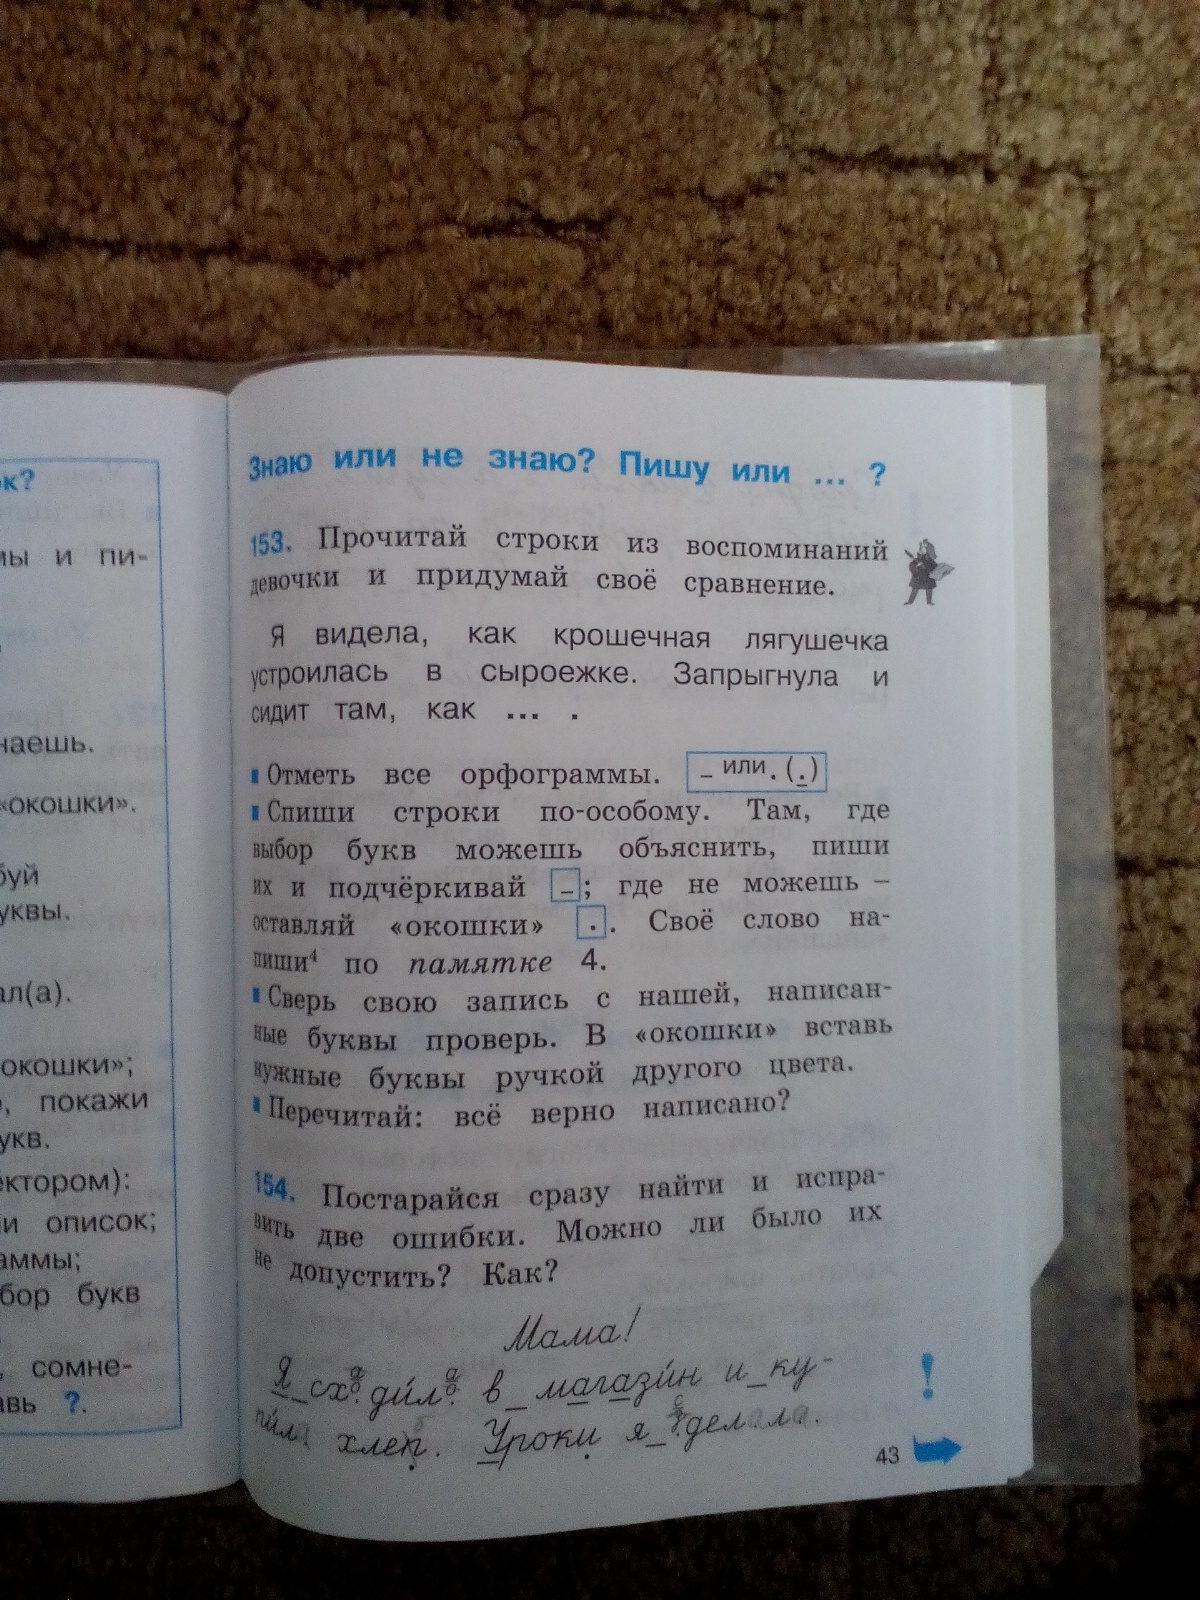 ок?
мы и пи-
наешь.
«окошки».
буй
уквы.
ал(а).
окошки»;
о, покажи
укв.
ектором):
ли описок;
аммы;
бор букв
, сомне-
авь ?.
Знаю или не знаю? Пишу или ... ?
153. Прочитай строки из воспоминаний
девочки и придумай своё сравнение.
Я видела, как крошечная лягушечка
устроилась в сыроежке. Запрыгнула и
сидит там, как ... .
Отметь все орфограммы. _ или . (.)
Спиши строки по-особому. Там, где
выбор букв можешь объяснить, пиши
их и подчёркивай _; где не можешь –
оставляй «окошки» . . Своё слово на-
пиши⁴ по памятке 4.
Сверь свою запись с нашей, написан-
ные буквы проверь. В «окошки» вставь
нужные буквы ручкой другого цвета.
Перечитай: всё верно написано?
154. Постарайся сразу найти и испра-
вить две ошибки. Можно ли было их
не допустить? Как?
Мама!
Я_сх а/о дил а/о в_магазин и_ку-
пила хлеп. Уроки я_ с/з делала.
!
43